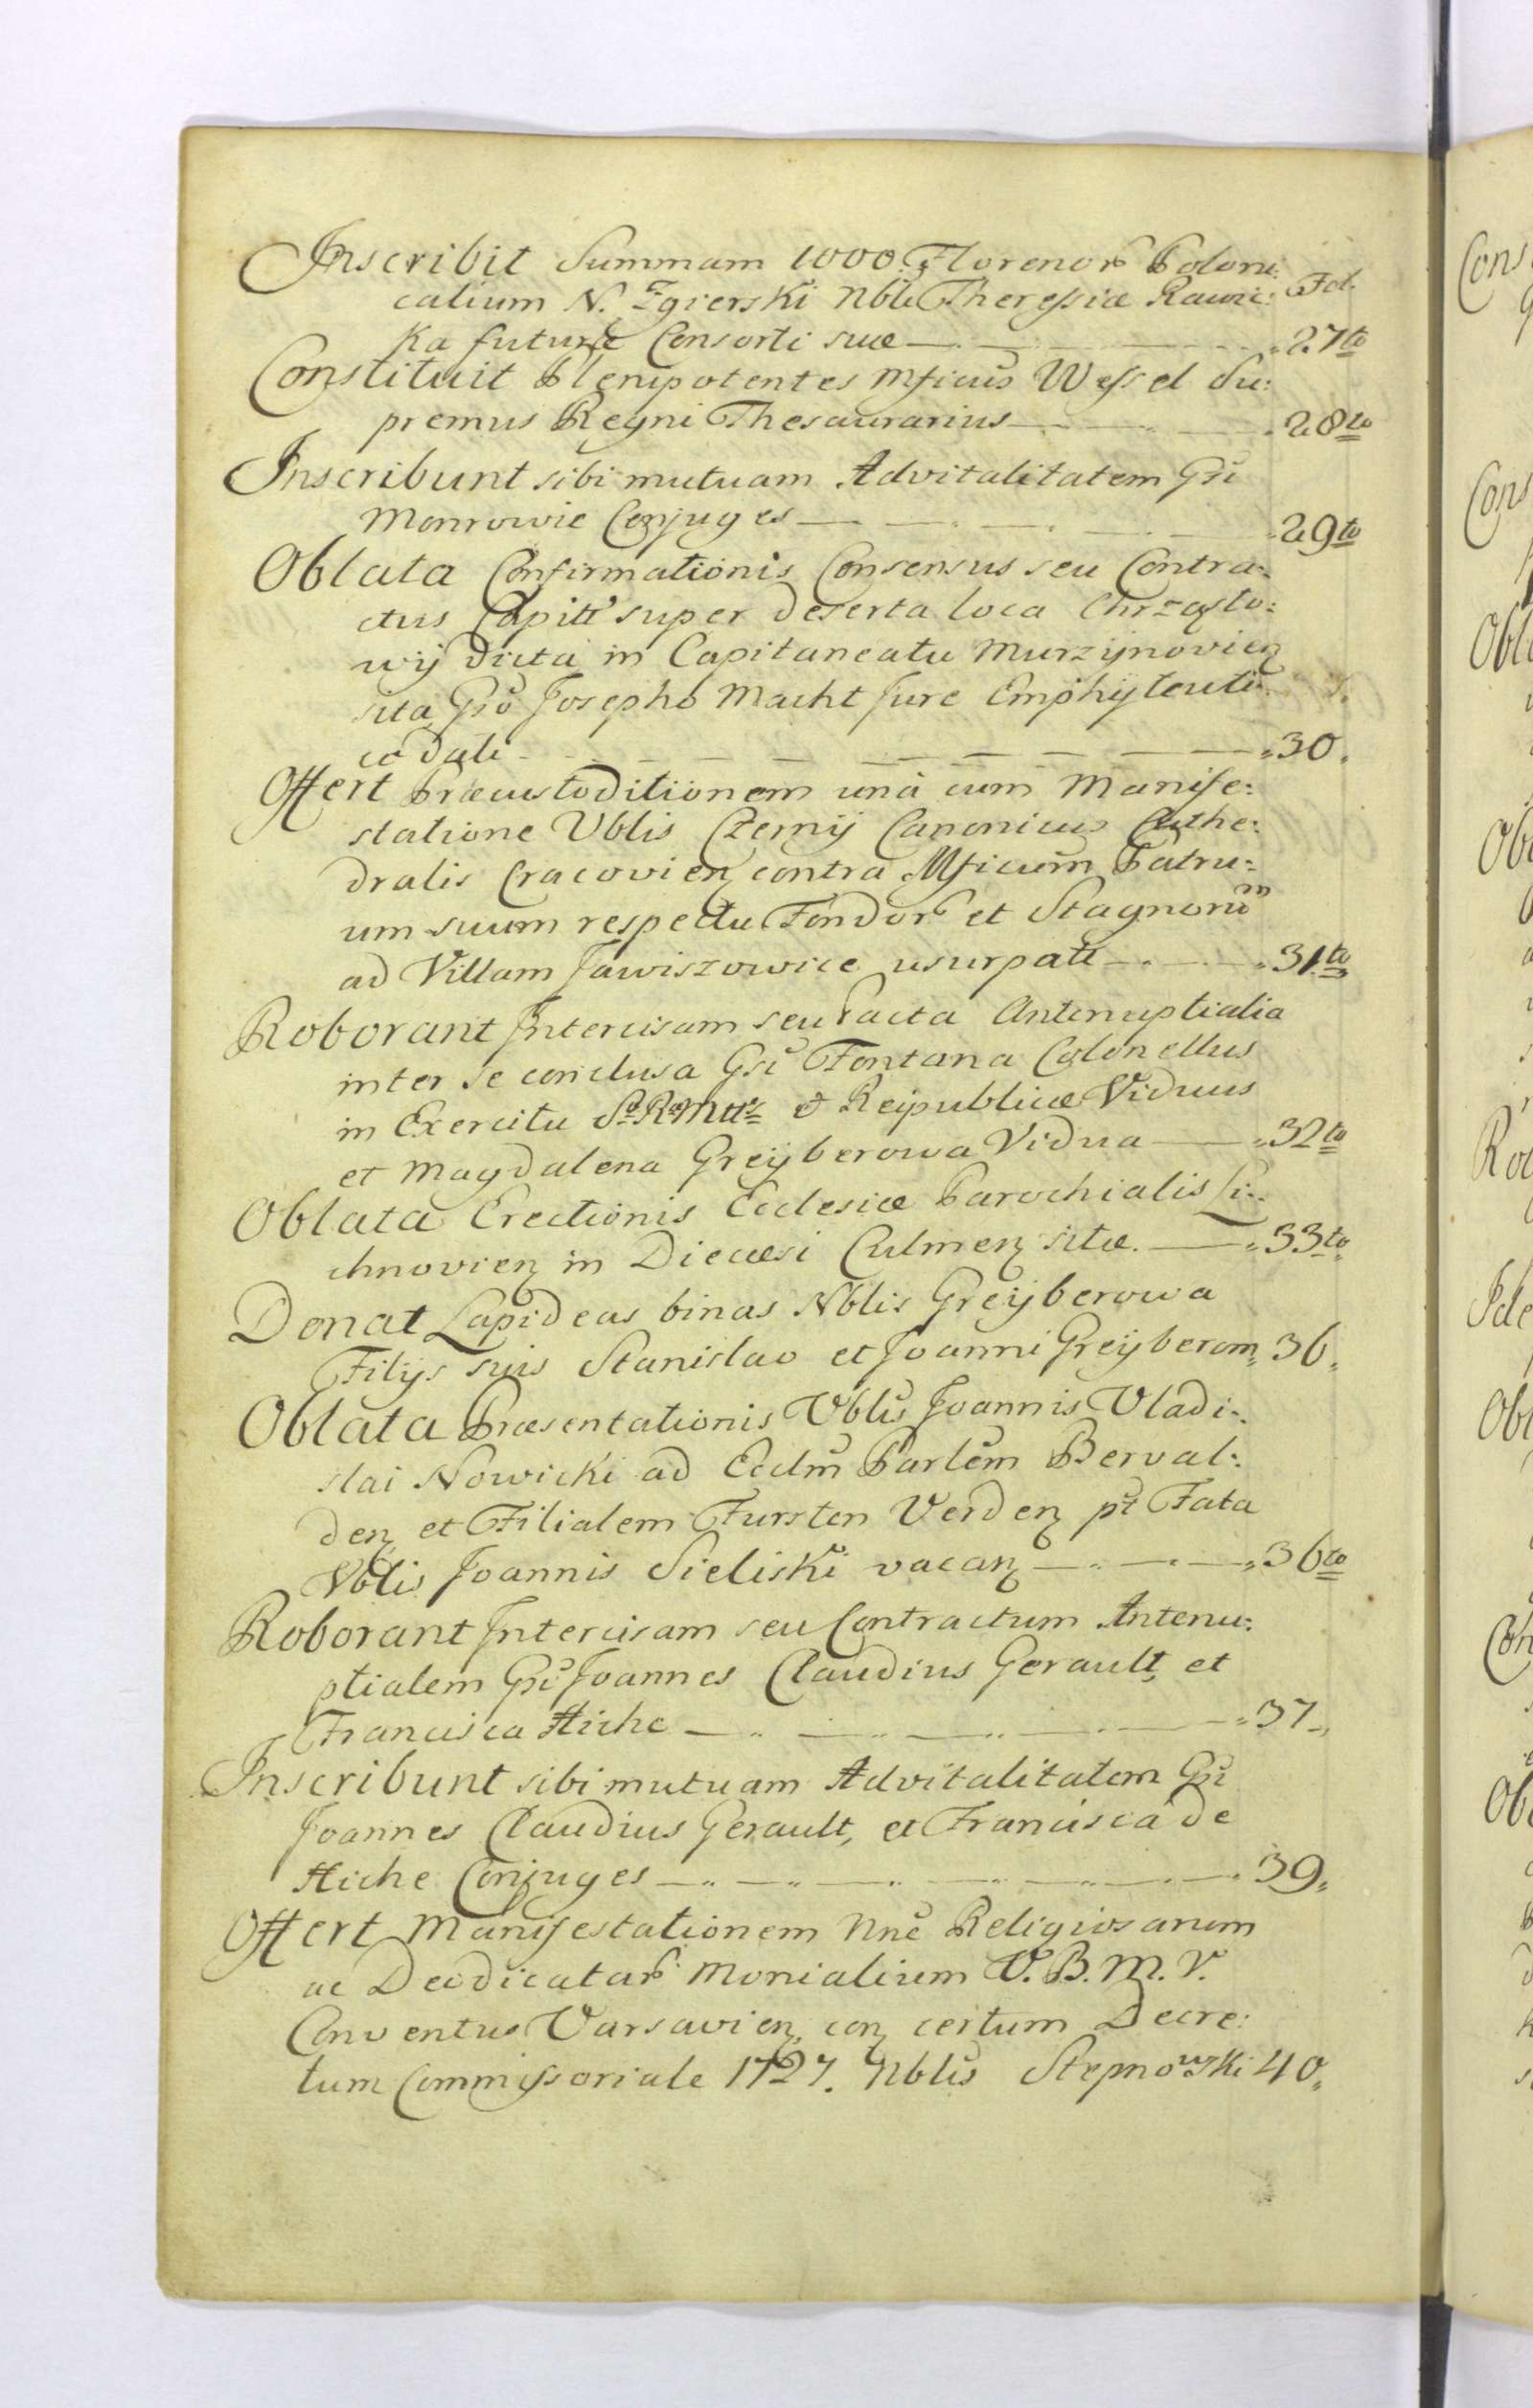 Inscribit Summam 1000. Florenor Poloni: Fol.
calium N. Zgierski Nbli Theressiæ Rawic:
ka futuræ Consorti suæ — 27to
Constituit Plenipotentes Mficus Wessel Su:
premus Regni Thesaurarius — 28to
Inscribunt sibi mutuam Advitalitatem Gsi
Monrowie Conjuges — 29to
Oblata Confirmationis Consensus seu Contra:
ctus Capitl super deserta loca Chrząsto:
wij dicta in Capitaneatu Murzijnovien
sita Gso Josepho Macht Jure Emphijteuti:
co dati — 30.
Offert Præcustoditionem unà cum Manife:
statione Vblis Czernij Canonicus Cathe:
dralis Cracovien contra Mficum Patru:
um suum respectu Fundor et Stagnorum
ad Villam Jawiszowice usurpatt — 31to
Roborant Intercisam seu Pacta Antenuptialia
inter se conclusa Gsi Fontana Colonellus
in Exercitu S. R. Mttis et Reipublicæ Viduus
et Magdalena Greijberowa Vidua — 32to
Oblata Erectionis Ecclesiæ Parochialis Li:
chnovien in Diecæsi Culmen sitæ. — 33to
Donat Lapideas binas Nblis Greijberowa
Filijs suis Stanislao et Joanni Greijberom 36.
Oblata Præsentationis Vblis Joannis Vladi:
slai Nowicki ad Ecclm Parlem Berval:
den et Filialem Fursten Verden pt Fata
Vblis Joannis Sieliski vacan — 36to
Roborant Intercisam seu Contractum Antenu:
ptialem Gsi Joannes Claudius Gerault, et
Francisca Hiche — 37.
Inscribunt sibi mutuam Advitalitatem Gsi
Joannes Claudius Gerault, et Francisca de
Hiche Conjuges — 39.
Offert Manifestationem Nne Religiosarum
ac Deodicatar Monialium V. B. M. V.
Conventus Varsavien, con certum Decre:
tum Commissoriale 1727. Nblis Stepnowski 40.